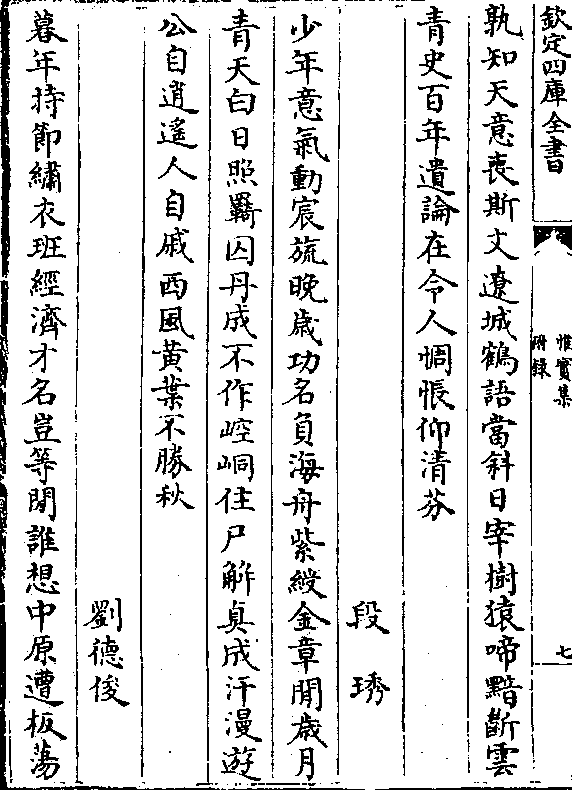 欽定四庫全書
惟實集
附録
七
孰知天意喪斯文遼城鶴語當斜日宰樹猿啼黯斷雲
青史百年遺論在令人惆悵仰清芬
段琇
少年意氣動宸旒晚歳功名負海舟紫綬金章閒歳月
青天白日照羇囚丹成不作崆峒住尸解真成汗漫遊
公自逍遙人自戚西風黄葉不勝秋
劉德俊
暮年持節繡衣班經濟才名豈等閒誰想中原遭板蕩